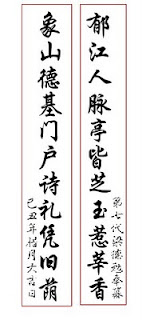 郁江人脉亭皆芝玉惹莘香
第七代梁德勉奉
象山德基门户诗礼凭旧荫
己丑年腊月大吉日